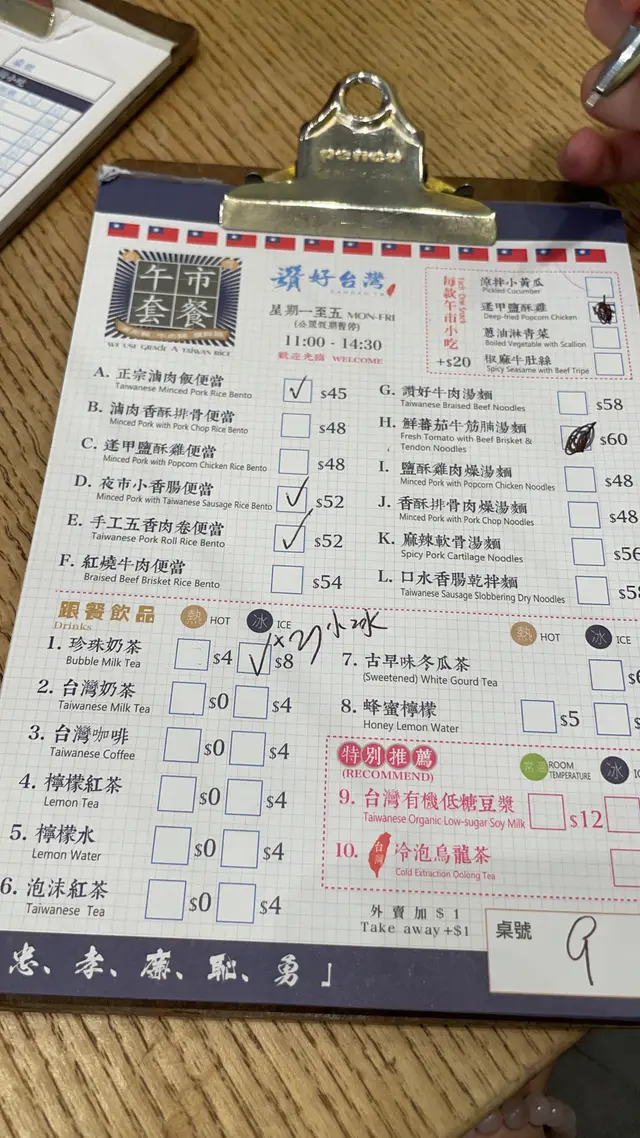 午市套餐
WE USE GRADE A TAIWAN RICE
讚好台灣
星期一至五 MON-FRI
(公眾假期暫停)
11:00 - 14:30
歡迎光臨 WELCOME
每款午市小吃
+$20
涼拌小黃瓜
Pickled Cucumber
逢甲鹽酥雞
Deep-fried Popcorn Chicken
蔥油淋青菜
Boiled Vegetable with Scallion
椒麻牛肚絲
Spicy Seasame with Beef Tripe
A. 正宗滷肉飯便當 $45
Taiwanese Minced Pork Rice Bento
B. 滷肉香酥排骨便當 $48
Minced Pork with Pork Chop Rice Bento
C. 逢甲鹽酥雞便當 $48
Minced Pork with Popcorn Chicken Rice Bento
D. 夜市小香腸便當 $52
Minced Pork with Taiwanese Sausage Rice Bento
E. 手工五香肉卷便當 $52
Taiwanese Pork Roll Rice Bento
F. 紅燒牛肉便當 $54
Braised Beef Brisket Rice Bento
G. 讚好牛肉湯麵 $58
Taiwanese Braised Beef Noodles
H. 鮮蕃茄牛筋腩湯麵 $60
Fresh Tomato with Beef Brisket &
Tendon Noodles
I. 鹽酥雞肉燥湯麵 $48
Minced Pork with Popcorn Chicken Noodles
J. 香酥排骨肉燥湯麵 $48
Minced Pork with Pork Chop Noodles
K. 麻辣軟骨湯麵 $56
Spicy Pork Cartilage Noodles
L. 口水香腸乾拌麵
Taiwanese Sausage Slobbering Dry Noodles
跟餐飲品 熱 HOT 冰 ICE
Drinks
1. 珍珠奶茶 $4 $8
Bubble Milk Tea
小冰
2. 台灣奶茶 $0 $4
Taiwanese Milk Tea
3. 台灣咖啡 $0 $4
Taiwanese Coffee
4. 檸檬紅茶 $0 $4
Lemon Tea
5. 檸檬水 $0 $4
Lemon Water
6. 泡沫紅茶 $0 $4
Taiwanese Tea
熱 HOT 冰 ICE
7. 古早味冬瓜茶
(Sweetened) White Gourd Tea
8. 蜂蜜檸檬 $5
Honey Lemon Water
特別推薦
(RECOMMEND)
常溫 ROOM TEMPERATURE 冰
9. 台灣有機低糖豆漿 $12
Taiwanese Organic Low-sugar Soy Milk
10. 台灣 冷泡烏龍茶
Cold Extraction Oolong Tea
外賣加 $ 1
Take away +$1
桌號 9
忠、孝、廉、恥、勇」